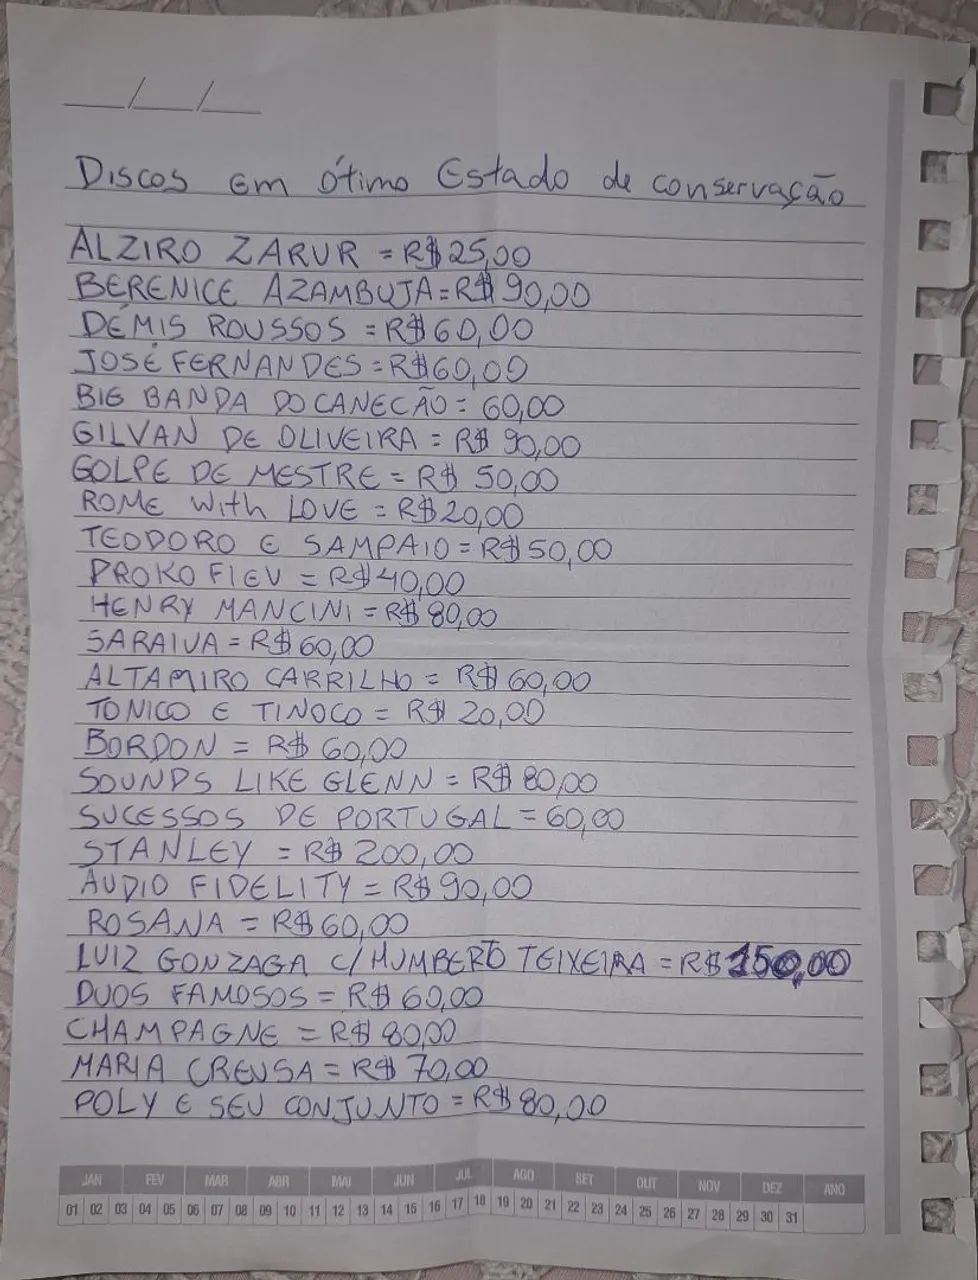 __/__/__
Discos em ótimo Estado de conservação
ALZIRO ZARUR = R$ 25,00
BERENICE AZAMBUJA = R$ 90,00
DÉMIS ROUSSOS = R$ 60,00
JOSÉ FERNANDES = R$ 60,00
BIG BANDA DO CANECÃO = 60,00
GILVAN DE OLIVEIRA = R$ 90,00
GOLPE DE MESTRE = R$ 50,00
ROME With LOVE = R$ 20,00
TEODORO E SAMPAIO = R$ 50,00
PROKOFIEV = R$ 40,00
HENRY MANCINI = R$ 80,00
SARAIVA = R$ 60,00
ALTAMIRO CARRILHO = R$ 60,00
TONICO E TINOCO = R$ 20,00
BORDON = R$ 60,00
SOUNDS LIKE GLENN = R$ 80,00
SUCESSOS DE PORTUGAL = 60,00
STANLEY = R$ 200,00
ÁUDIO FIDELITY = R$ 90,00
ROSANA = R$ 60,00
LUIZ GONZAGA C/ HUMBERTO TEIXEIRA = R$ 150,00
DUOS FAMOSOS = R$ 60,00
CHAMPAGNE = R$ 80,00
MARIA CREUSA = R$ 70,00
POLY E SEU CONJUNTO = R$ 80,00
JAN FEV MAR ABR MAI JUN JUL AGO SET OUT NOV DEZ ANO
01 02 03 04 05 06 07 08 09 10 11 12 13 14 15 16 17 18 19 20 21 22 23 24 25 26 27 28 29 30 31